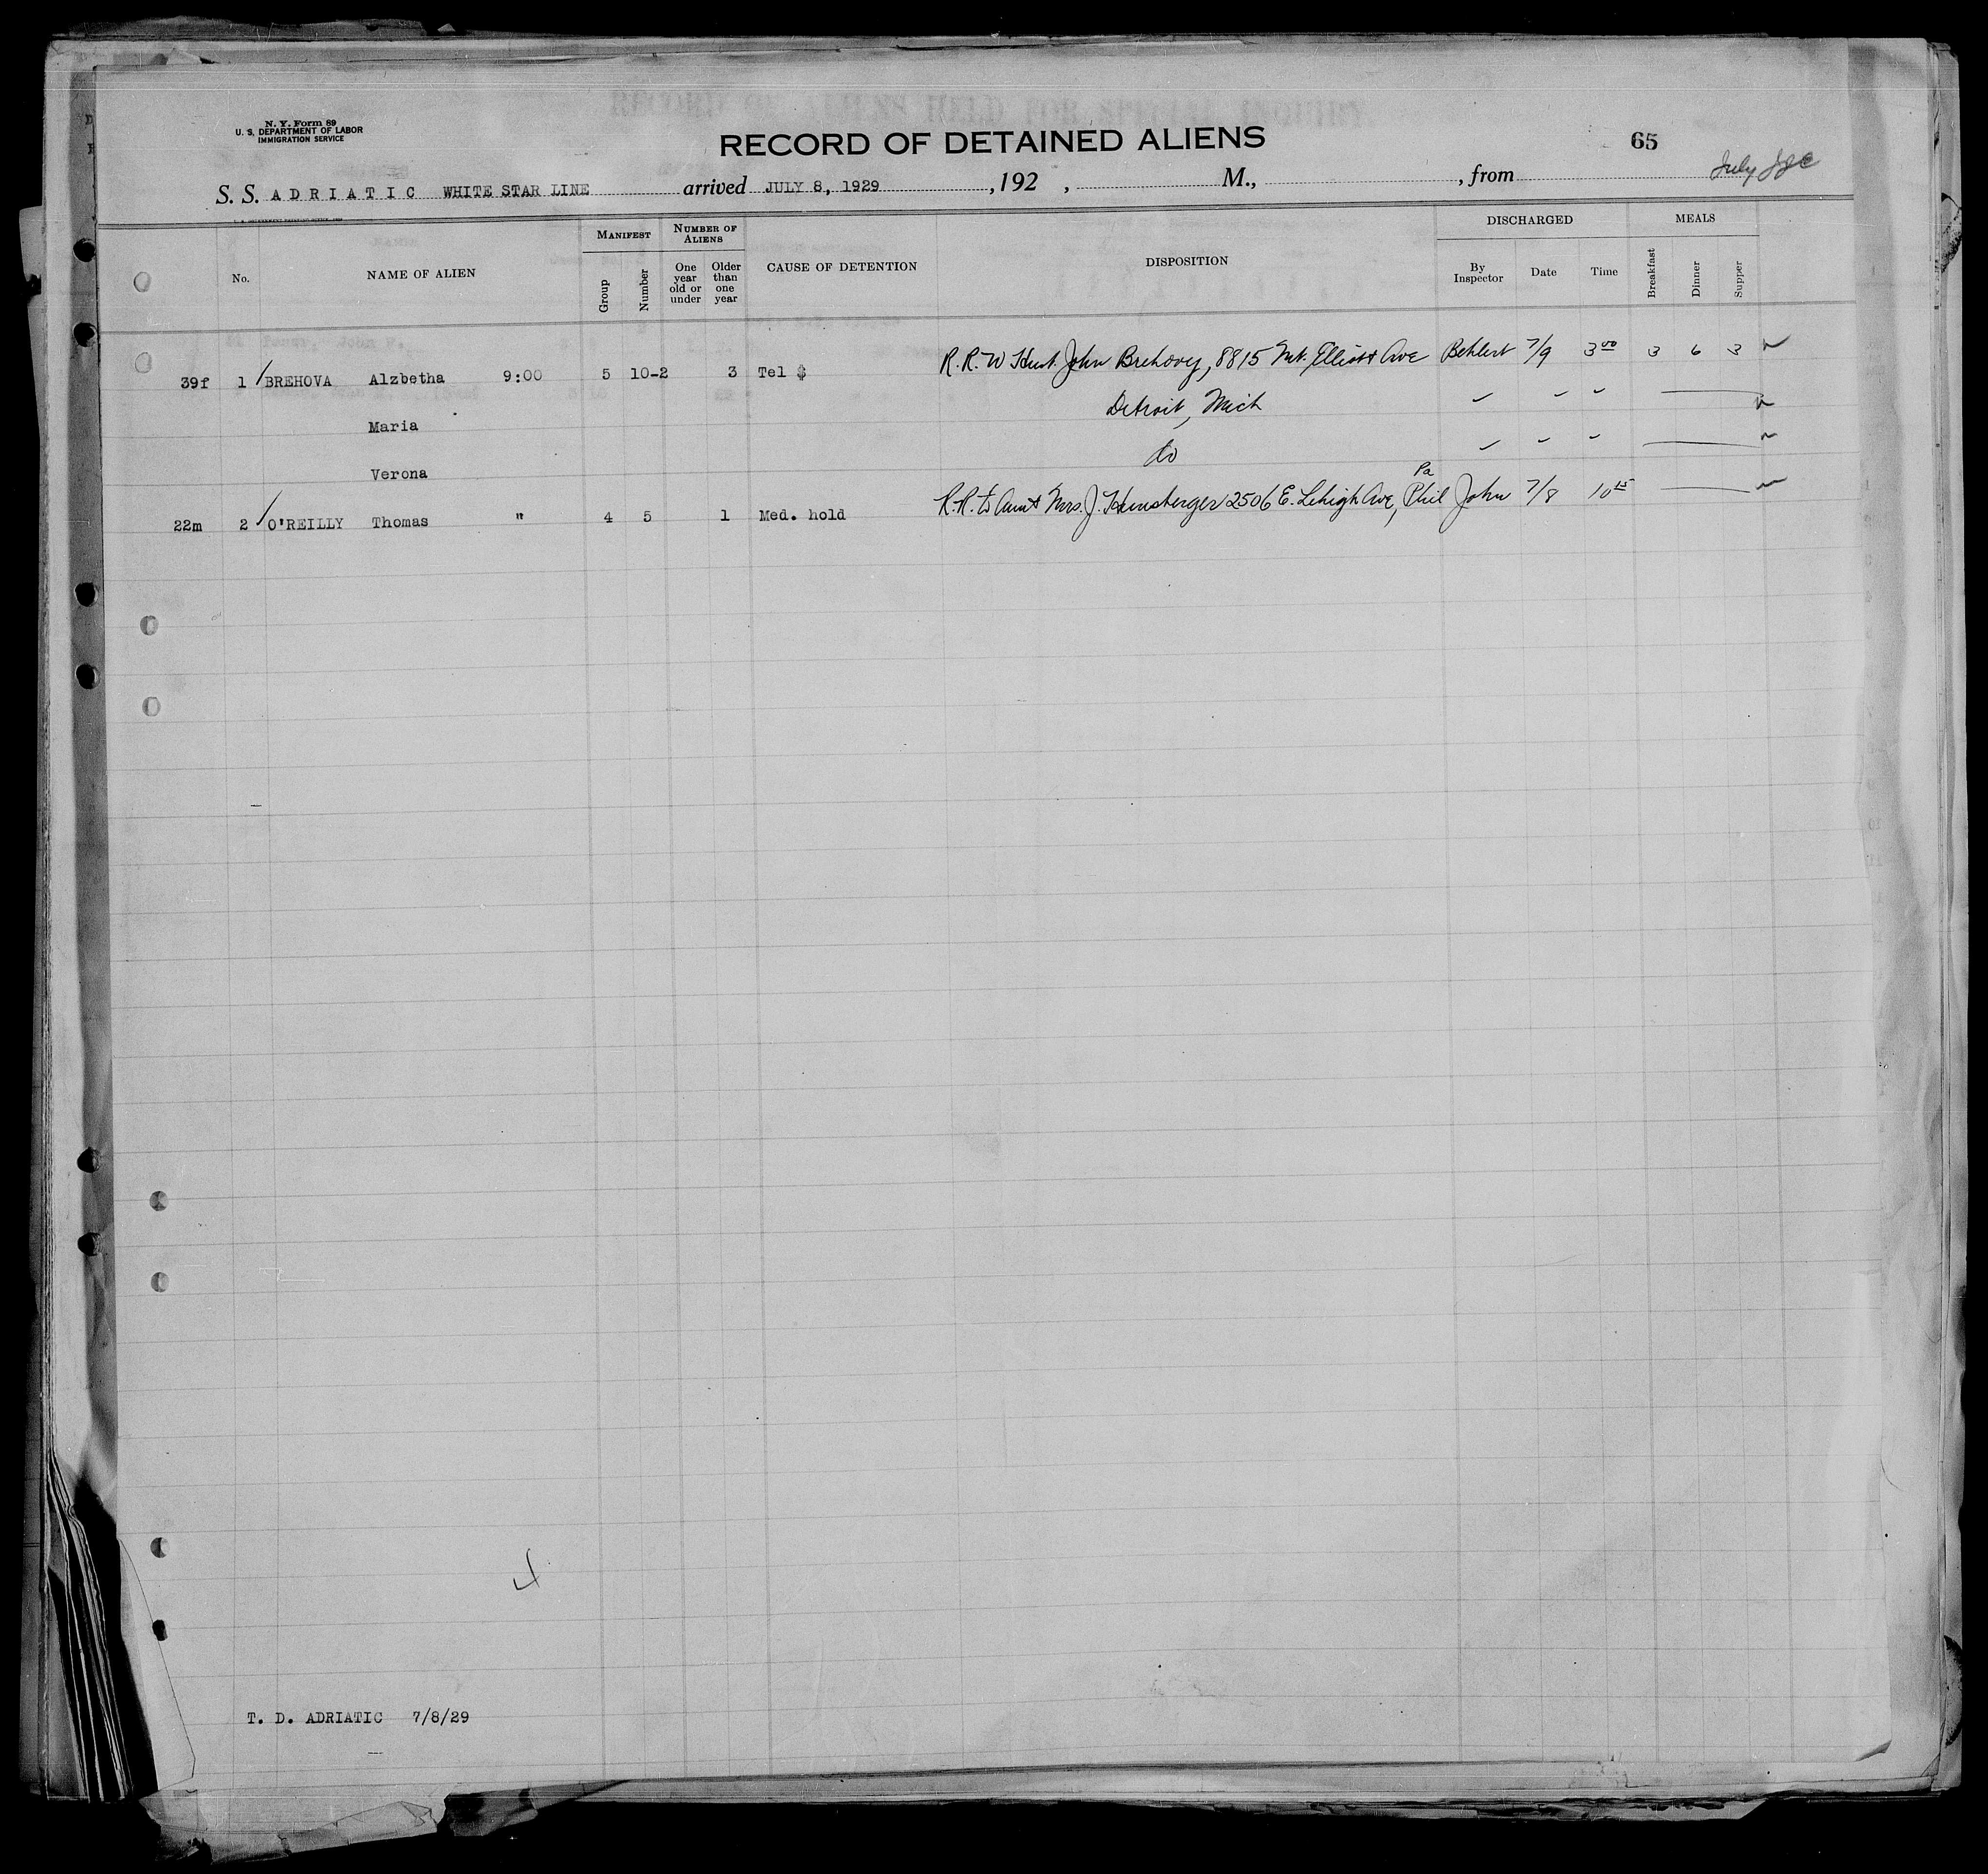 N. Y. Form 89
U. S. DEPARTMENT OF LABOR
IMMIGRATION SERVICE
RECORD OF ALIENS HELD FOR SPECIAL INQUIRY
RECORD OF DETAINED ALIENS
65
July
S. S. ADRIATIC WHITE STAR LINE arrived JULY 8, 1929, 192 , M., , from
No. NAME OF ALIEN MANIFEST NUMBER OF ALIENS CAUSE OF DETENTION DISPOSITION DISCHARGED MEALS
Group Number One year old or under Older than one year By Inspector Date Time Breakfast Dinner Supper
39f 1 / BREHOVA Alzbetha 9:00 5 10-2 3 Tel $ R. R. W Hust. John Brehovy, 8815 Mt. Elliott Ave Behlert 7/9 3 00 3 6 3
Maria Detroit, Mich
Verona do
22m 2 / O'REILLY Thomas " 4 5 1 Med. hold R. R. to Aunt Mrs. J. 2506 E. Lehigh Ave, Phil Pa John 7/8 10 15
4
T. D. ADRIATIC 7/8/29